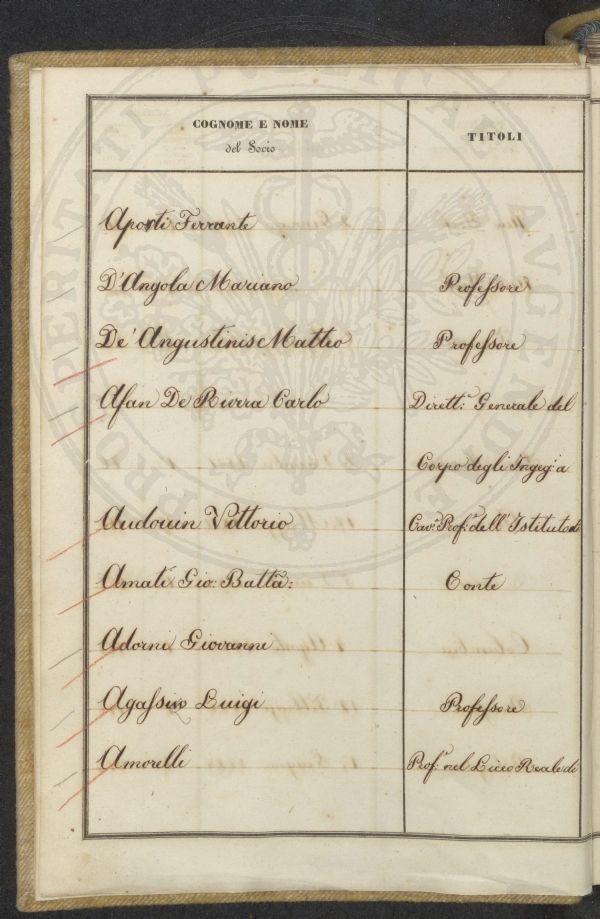 COGNOME E NOME
del Socio
TITOLI
Aporti Ferrante
D'Angola Mariano Professore
De' Angustinis Matteo Professore
Afan De Rivera Carlo Dirett.e Generale del
Corpo degli Ingeg.i a
Audouin Vittorio Cav.e Prof.e dell'Istituto di
Amati Gio: Batta: Conte
Adorni Giovanni
Agassiz Luigi Professore
Amorelli Prof.e nel Liceo Reale di
PRO VERITATI PUBLICAE AVGENDAE